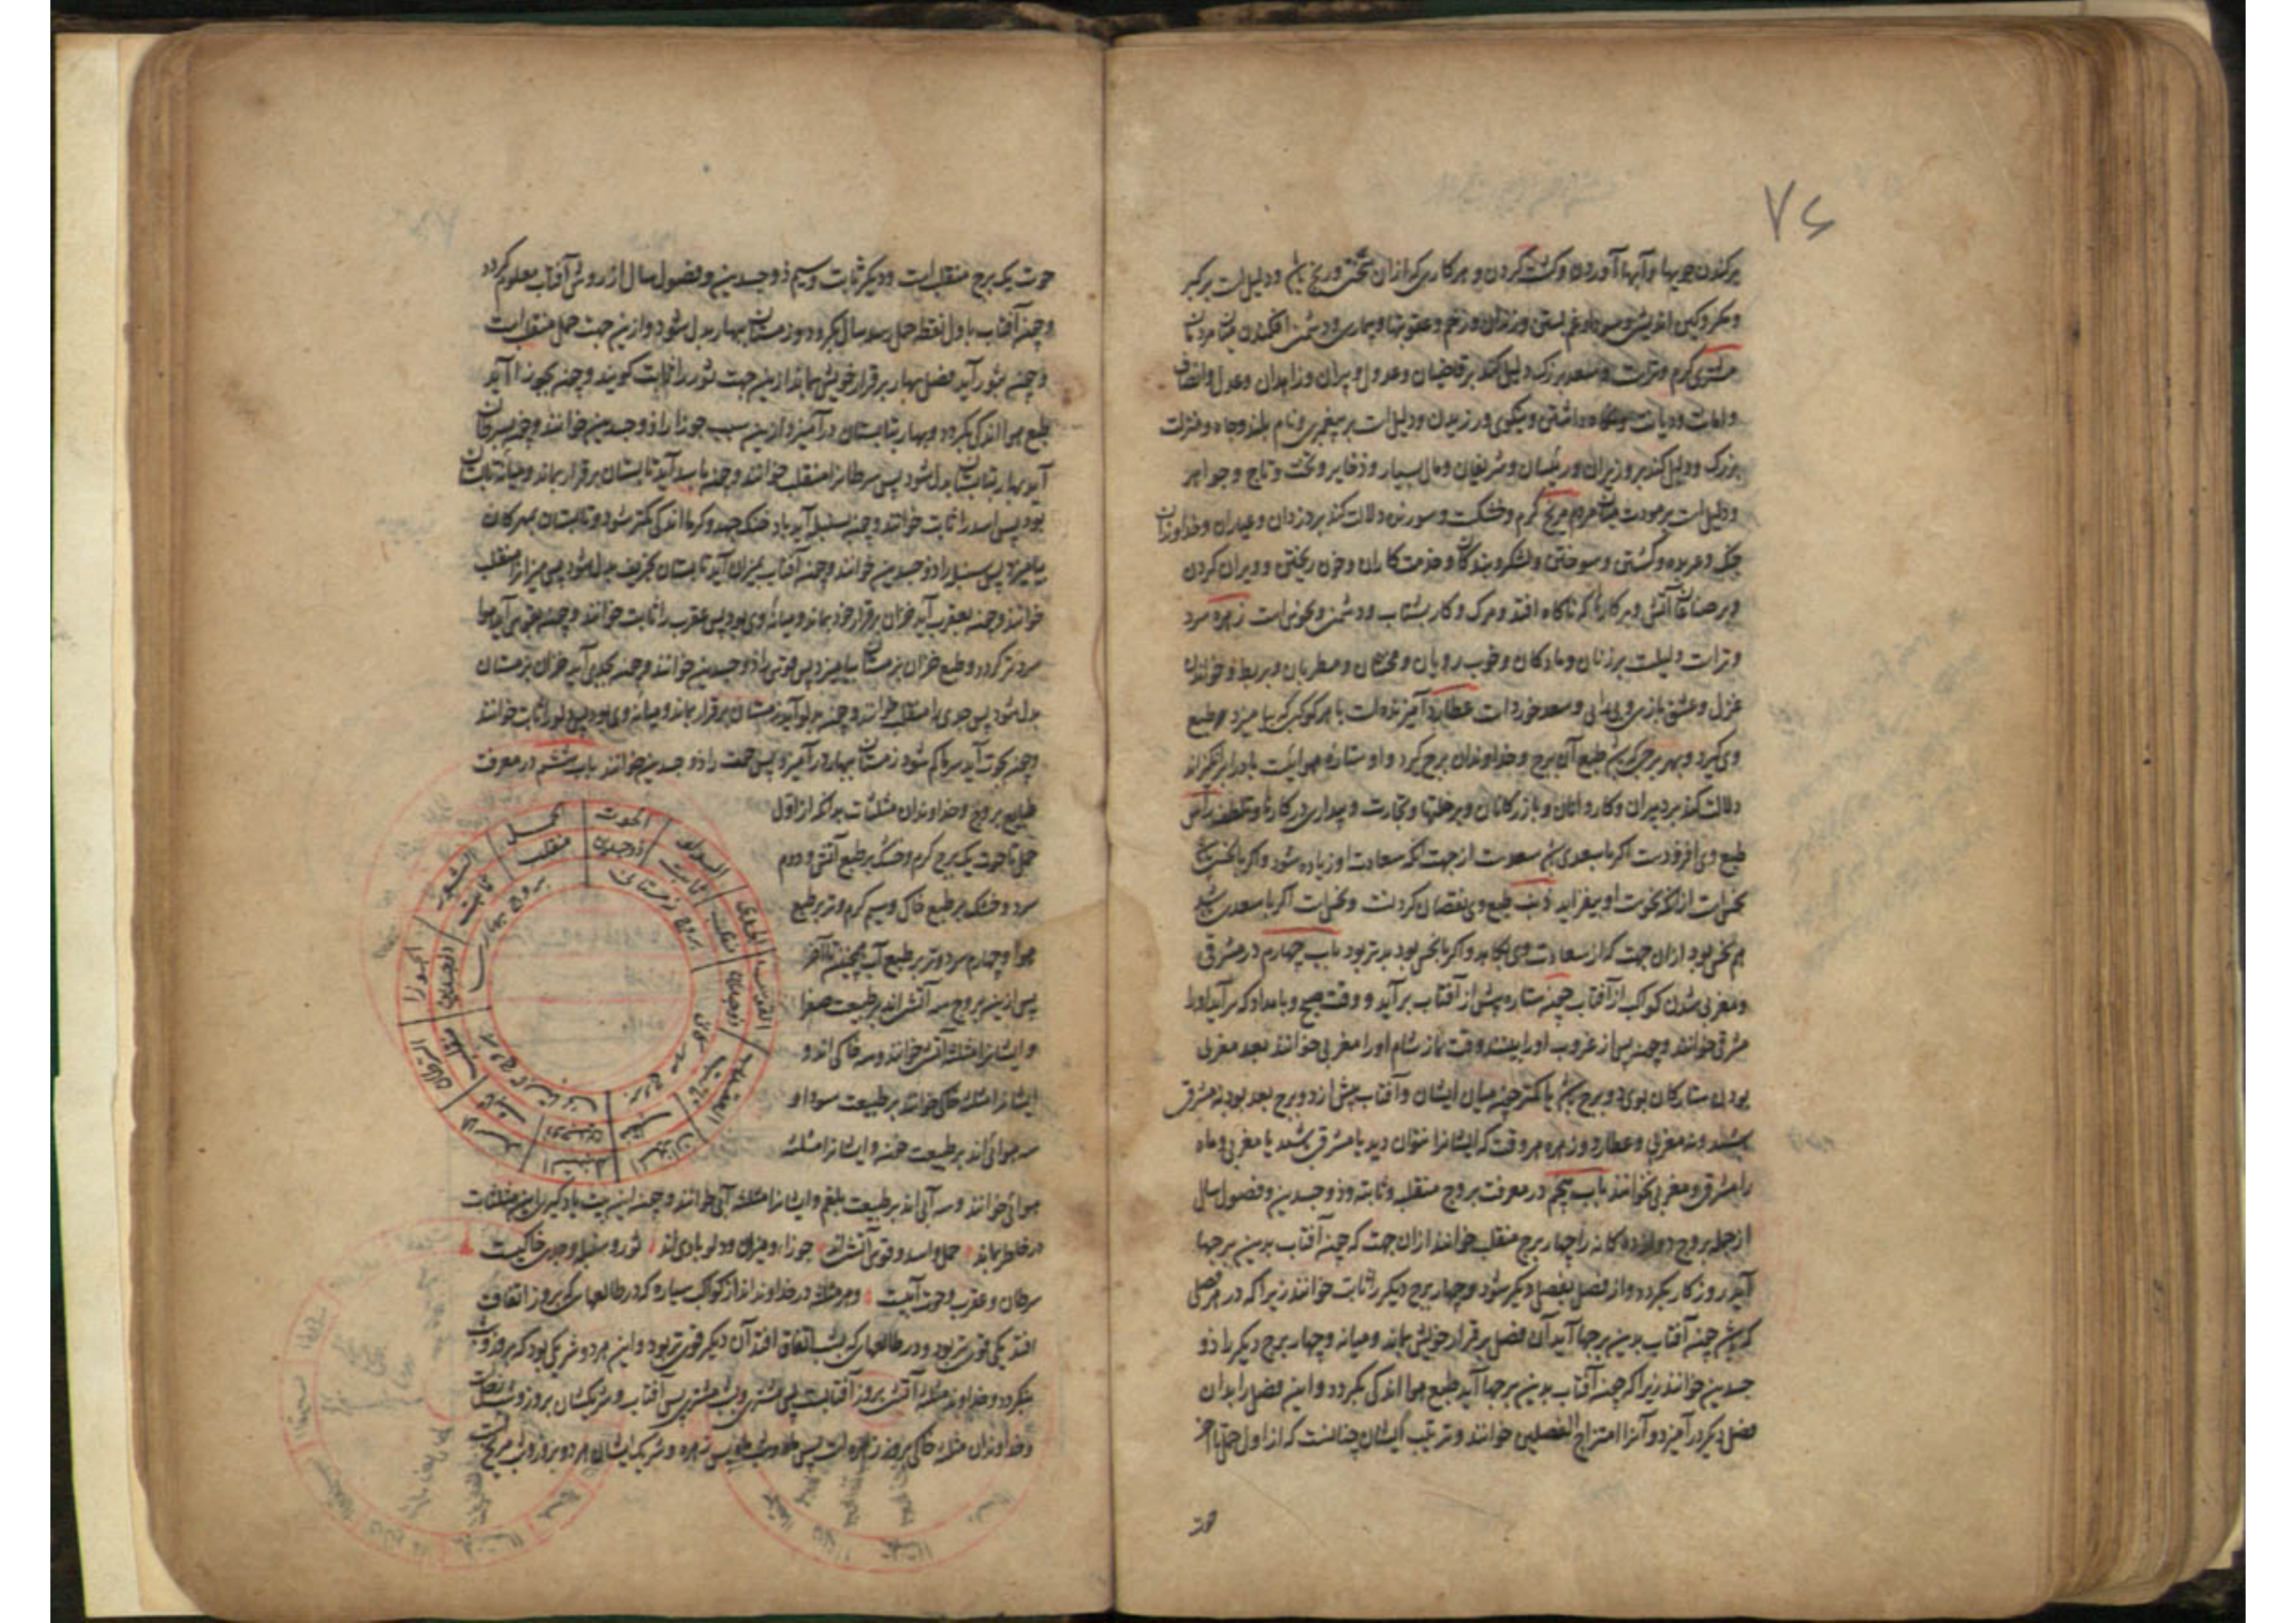 ۷۴
برکندن جویها و آبها آوردن و کشت کردن و هر کاری که ازان سختی و رنج و دلیل است بر کبر
و مکر و کین و غم و زندان و زخم و عقوبتها و بیماری و دشمن افکندن میان مردمان
مشتری گرم و ترست و سعد بزرک دلیل کند بر قاضیان و عدول و پیران و زاهدان و عدل و انصاف
و امانت و دیانت و داشتن و نیکوی ورزیدن و دلیل است بر پیغمبری و نام بلند و جاه و منزلت
بزرک و دلیل کند بر وزیران و رئیسان و شریفان و مال بسیار و ذخایر و تخت و تاج و جواهر
و دلیل است بر مودت میان مردم مریخ گرم و خشکست و سوزنده دلالت کند بر دزدان و عیاران و خداوندان
جنک و عربده و کشتن و سوختن و لشکر و بندگان و خدمتکاران و خون ریختن و ویران کردن
و بر صناعات آتش و هر کارها که ناکاه افتد و مرک و کار بشتاب و دشمن و نحوس است زهره سرد
و ترات دلیلست بر زنان و مادکان و خوب رویان و مخنثان و مطربان و بربط و خواندن
غزل و عشق بازی و سعد خوردات عطارد آمیزنده است با هر کوکب که بیامیزد طبع
وی کیرد و بهر برجی که طبع آن برج و خداوندان برج کیرد و او ستاره هوایی است بادها برانگیزاند
دلالت کند بر دبیران و کارداران و بازرکانان و بر خطها و تجارت و بیداری در کارها و تلطف راس
طبع وی افزودست اگر با سعدی سعودست از جهت آنکه سعادت او زیاده شود و اگر با نحس
نحس است ازانکه نحوست او بیفزاید ذنب طبع وی نقصان کردنست و نحس است اگر با سعدی
هم نحس بود ازان جهت که از سعادت وی بکاهد و اگر با نحس بود بدتر بود باب چهارم در مشرقی
و مغربی شدن کواکب از آفتاب چون ستاره پیش از آفتاب برآید و وقت صبح و بامداد که برآید او را
مشرقی خوانند و چون پس از غروب او را بینند وقت نماز شام او را مغربی خوانند بعد مغربی
بودن ستارکان دو برج یا کمتر چون میان ایشان و آفتاب بیش از دو برج بعد بود نه مشرقی
باشند و نه مغربی و عطارد و زهره هر وقت که ایشانرا توان دید یا مشرقی باشند یا مغربی و ماه
را مشرقی و مغربی نخوانند باب پنجم در معرفت بروج منقلب و ثابته و ذو جسدین و فصول سال
از جمله بروج دوازده کانه را چهار برج منقلب خوانند ازان جهت که چون آفتاب بدین برجها
آید روزکار بگردد و از فصل بفصل دیگر شود و چهار برج دیگر را ثابت خوانند زیرا که در هر فصل
که چون آفتاب بدین برجها آید آن فصل بر قرار خویش بماند و میانه و چهار برج دیگر را ذو
جسدین خوانند زیرا که چون آفتاب بدین برجها آید طبع هوا اندکی بگردد و این فصل را بدان
فصل دیگر درآمیزد و آنرا امتزاج الفصلین خوانند و ترتیب ایشان چنانست که از اول حمل تا آخر
حوت
حوت یک برج منقلب است و دیگر ثابت و سیم ذو جسدین و فصول سال از روش آفتاب معلوم گردد
و چون آفتاب باول نقطه حمل رسد سال بگردد و زمستان بهار بدل شود و ازین جهت حمل منقلب است
و چون بثور آید فصل بهار بر قرار خویش بماند ازین جهت ثور را ثابت گویند و چون بجوزا آید
طبع هوا اندکی بگردد و بهار بتابستان درآمیزد ازین سبب جوزا را ذو جسدین خوانند و چون بسرطان
آید بهار بتابستان بدل شود پس سرطانرا منقلب خوانند و چون باسد آید تابستان بر قرار بماند و میانه تابستان
بود پس اسد را ثابت خوانند و چون بسنبله آید باد خنک جهد و گرما اندکی کمتر شود و تابستان بمهرکان
بیامیزد پس سنبله را ذو جسدین خوانند و چون آفتاب بمیزان آید تابستان بخریف بدل شود پس میزانرا منقلب
خوانند و چون بعقرب آید خزان بر قرار خود بماند و میانه وی بود پس عقرب را ثابت خوانند و چون بقوس آید هوا
سردتر گردد و طبع خزان بزمستان بیامیزد پس قوس را ذو جسدین خوانند و چون بجدی آید خزان بزمستان
بدل شود پس جدی را منقلب خوانند و چون بدلو آید زمستان بر قرار بماند و میانه وی بود پس دلو را ثابت خوانند
و چون بحوت آید سرما کم شود زمستان ببهار درآمیزد پس حوت را ذو جسدین خوانند باب ششم در معرفت
طبایع بروج و خداوندان مثلثات بدانکه از اول
حمل تا حوت یک برج گرم و خشک بر طبع آتش و دوم
سرد و خشک بر طبع خاک و سیم گرم و تر بر طبع
هوا و چهارم سرد و تر بر طبع آب همچنین تا آخر
پس ازین بروج سه آتشی اند بر طبیعت صفرا
و ایشانرا مثلثه آتشی خوانند و سه خاکی اند و
ایشانرا مثلثه خاکی خوانند بر طبیعت سودا و
سه هوائی اند بر طبیعت خون و ایشانرا مثلثه
هوائی خوانند و سه آبی اند بر طبیعت بلغم و ایشانرا مثلثه آبی خوانند و چون این بیت یاد گیری این مثلثات
در خاطر بماند حمل و اسد و قوس آتش اند جوزا و میزان و دلو بادی اند ثور و سنبله و جدی خاکیست
سرطان و عقرب و حوت آبیست و هر مثلثه در خداوند اند از کواکب سیاره که در طالعهای که بروز اتفاق
افتد یکی قوی تر بود و در طالعها که بشب اتفاق افتد آن دیگر قوی تر بود و این هر دو شریکی بود که بروز و شب
بنگردد و خداوند مثلثه آتشی بروز آفتابست پس مشتری و بشب مشتری پس آفتاب و شریکشان بروز و شب زحلست
و خداوندان مثلثه خاکی بروز زهره است پس ماه و بشب ماه پس زهره و شریک ایشان هر دو بروز و شب مریخ است
الحمل الثور الجوزا السرطان الاسد السنبله المیزان العقرب القوس الجدی الدلو الحوت
منقلب ثابت ذوجسدین منقلب ثابت ذوجسدین منقلب ثابت ذوجسدین منقلب ثابت ذوجسدین
بروج بهاری
بروج زمستانی